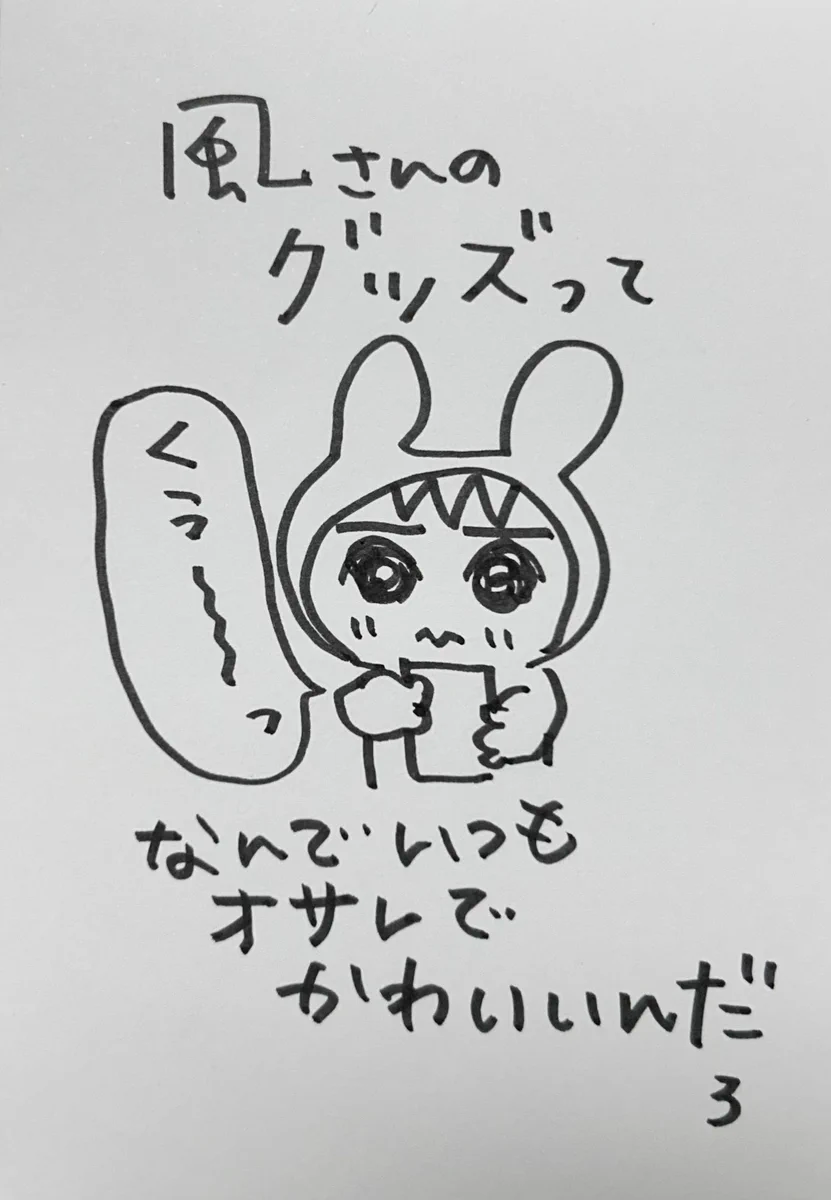 風さんの
グッズって
くぅ〜〜っ
なんでいつも
オサレで
かわいいんだ
ろ